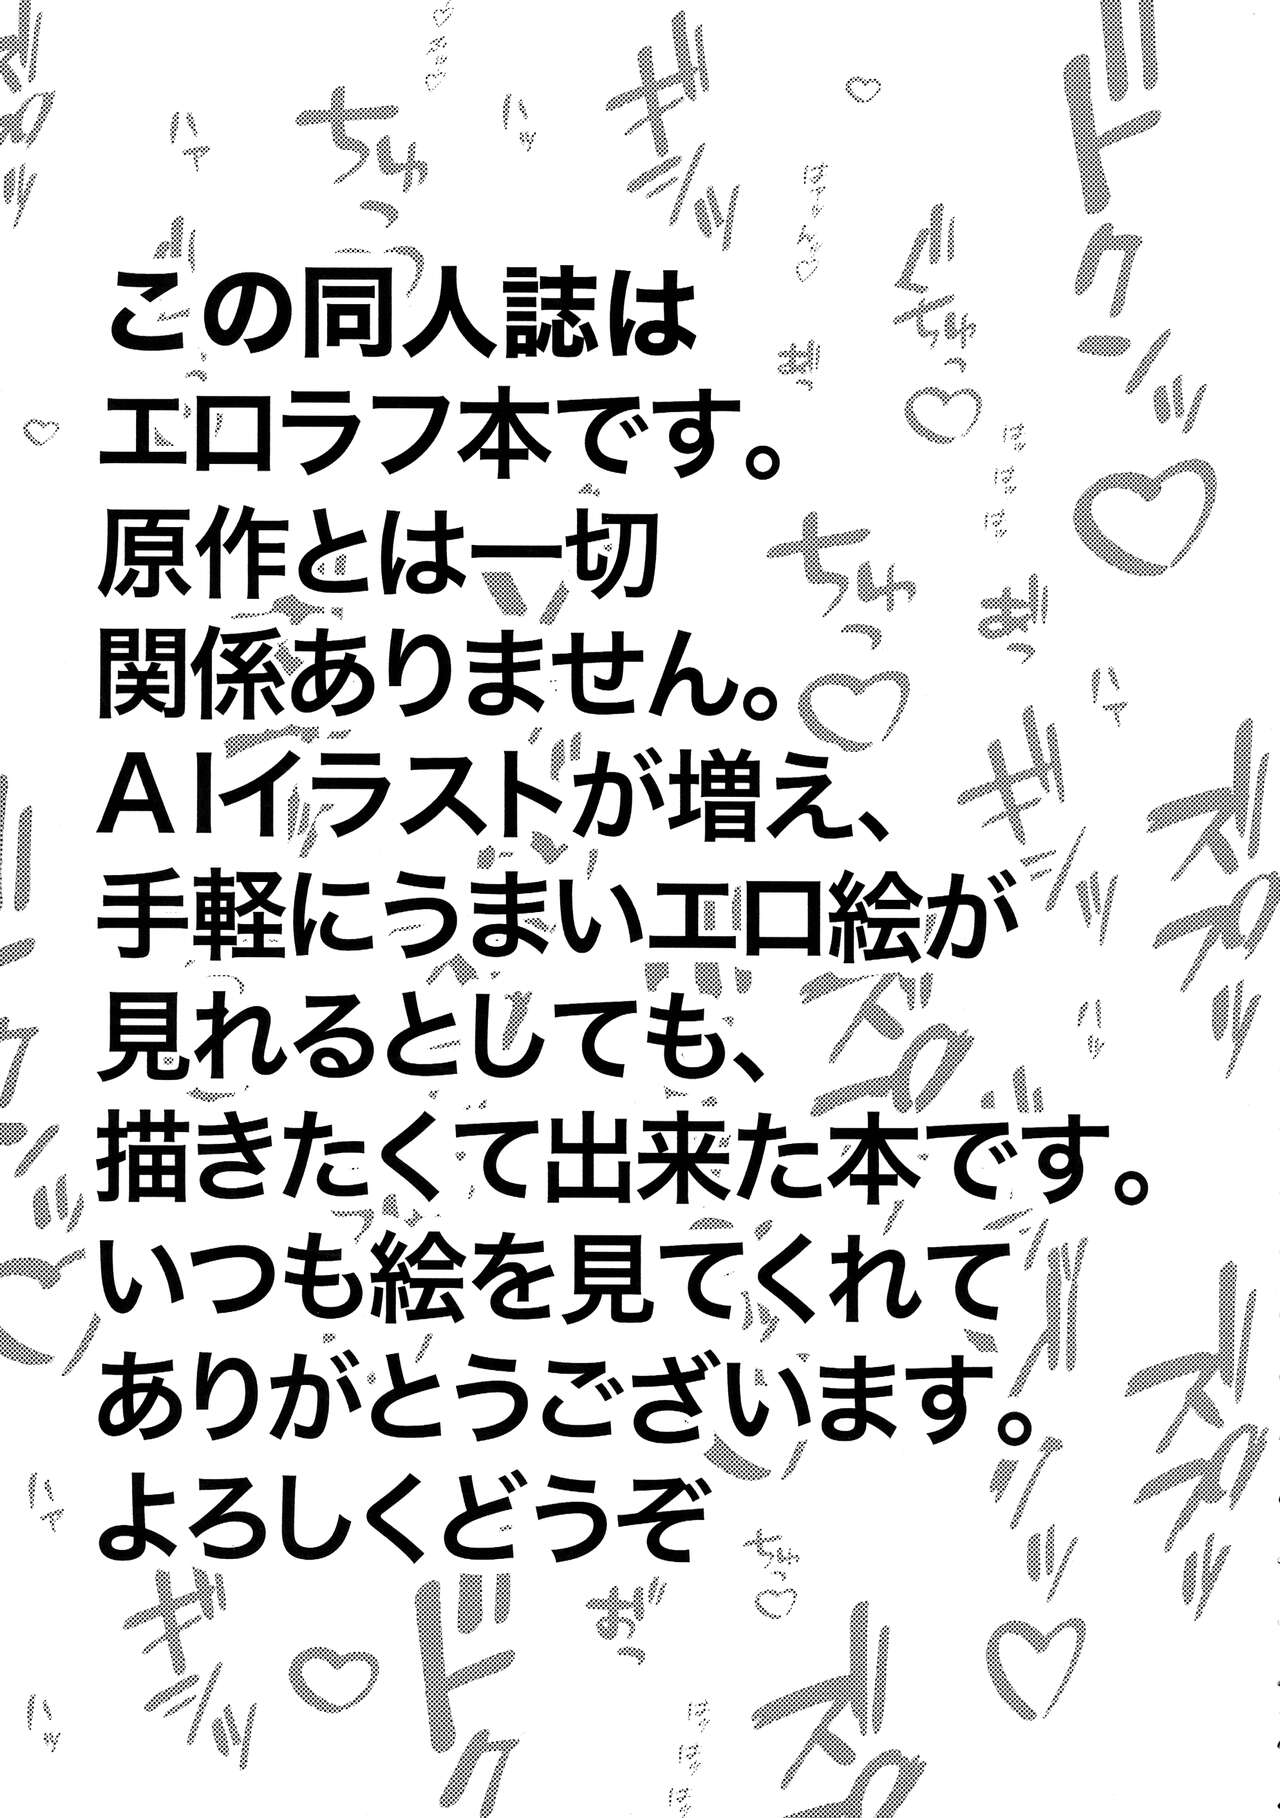 この同人誌は
エロラフ本です。
原作とは一切
関係ありません。
AIイラストが増え、
手軽にうまいエロ絵が
見れるとしても、
描きたくて出来た本です。
いつも絵を見てくれて
ありがとうございます。
よろしくどうぞ
ちゅっ
ハァ
ハッ
ギシッ
ドクンッ
ちゅっ
ちゅっ
ギシッ
ハァ
ハッ
ハァ
ギシッ
ドク
ちゅっ
ハッ